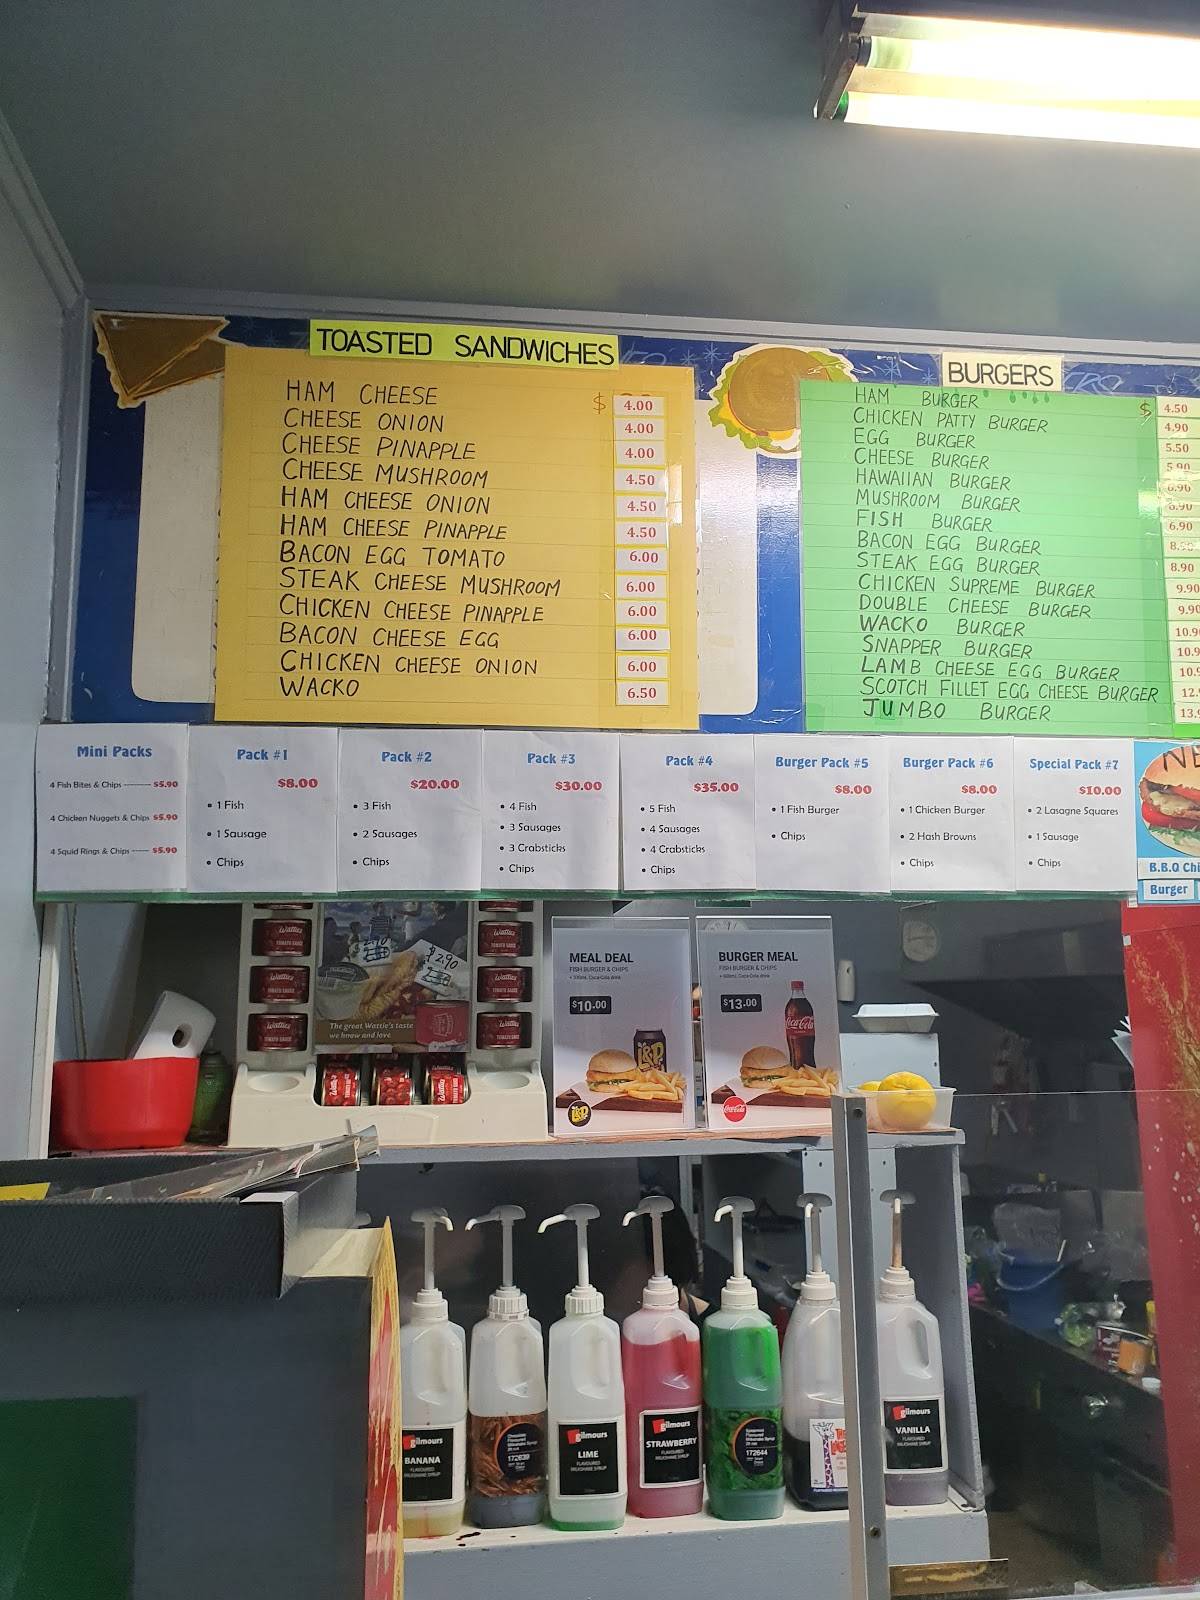 TOASTED SANDWICHES
HAM CHEESE $ 4.00
CHEESE ONION 4.00
CHEESE PINAPPLE 4.00
CHEESE MUSHROOM 4.50
HAM CHEESE ONION 4.50
HAM CHEESE PINAPPLE 4.50
BACON EGG TOMATO 6.00
STEAK CHEESE MUSHROOM 6.00
CHICKEN CHEESE PINAPPLE 6.00
BACON CHEESE EGG 6.00
CHICKEN CHEESE ONION 6.00
WACKO 6.50
BURGERS
HAM BURGER $ 4.50
CHICKEN PATTY BURGER 4.90
EGG BURGER 5.50
CHEESE BURGER 5.90
HAWAIIAN BURGER 6.90
MUSHROOM BURGER
FISH BURGER 6.90
BACON EGG BURGER
STEAK EGG BURGER 8.90
CHICKEN SUPREME BURGER 9.90
DOUBLE CHEESE BURGER 9.90
WACKO BURGER 10.9
SNAPPER BURGER 10.9
LAMB CHEESE EGG BURGER 10.9
SCOTCH FILLET EGG CHEESE BURGER 12.
JUMBO BURGER 13.
Mini Packs
4 Fish Bites & Chips $5.90
4 Chicken Nuggets & Chips $5.90
4 Squid Rings & Chips $5.90
Pack #1
$8.00
1 Fish
1 Sausage
Chips
Pack #2
$20.00
3 Fish
2 Sausages
Chips
Pack #3
$30.00
4 Fish
3 Sausages
3 Crabsticks
Chips
Pack #4
$35.00
5 Fish
4 Sausages
4 Crabsticks
Chips
Burger Pack #5
$8.00
1 Fish Burger
Chips
Burger Pack #6
$8.00
1 Chicken Burger
2 Hash Browns
Chips
Special Pack #7
$10.00
2 Lasagne Squares
1 Sausage
Chips
NE
B.B.Q Chi
Burger
Wattie's
TOMATO SAUCE
$2.90
The great Wattie's taste
we know and love
MEAL DEAL
FISH BURGER & CHIPS
$10.00
L&P
BURGER MEAL
FISH BURGER & CHIPS
$13.00
Coca-Cola
gilmours
BANANA
FLAVOURED
MILKSHAKE SYRUP
172639
gilmours
LIME
FLAVOURED
MILKSHAKE SYRUP
gilmours
STRAWBERRY
FLAVOURED
MILKSHAKE SYRUP
172644
gilmours
VANILLA
FLAVOURED
MILKSHAKE SYRUP